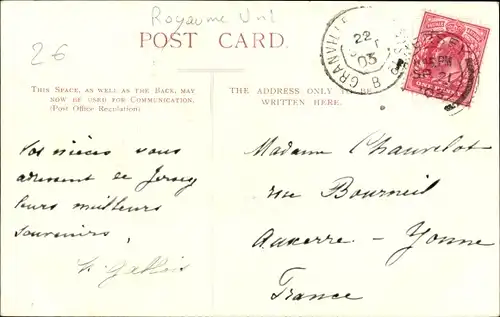 Royaume Uni
2€
POST CARD.
THIS SPACE, AS WELL AS THE BACK, MAY
NOW BE USED FOR COMMUNICATION.
(Post Office Regulation)
THE ADDRESS ONLY TO
WRITTEN HERE.
GRANVILLE
22
03
45 PM
SP 21
Vos nièces vous
adressent de Jersey
leurs meilleurs
souvenirs,
Madame Chauvelot
rue Bourneil
Auxerre - Yonne
France